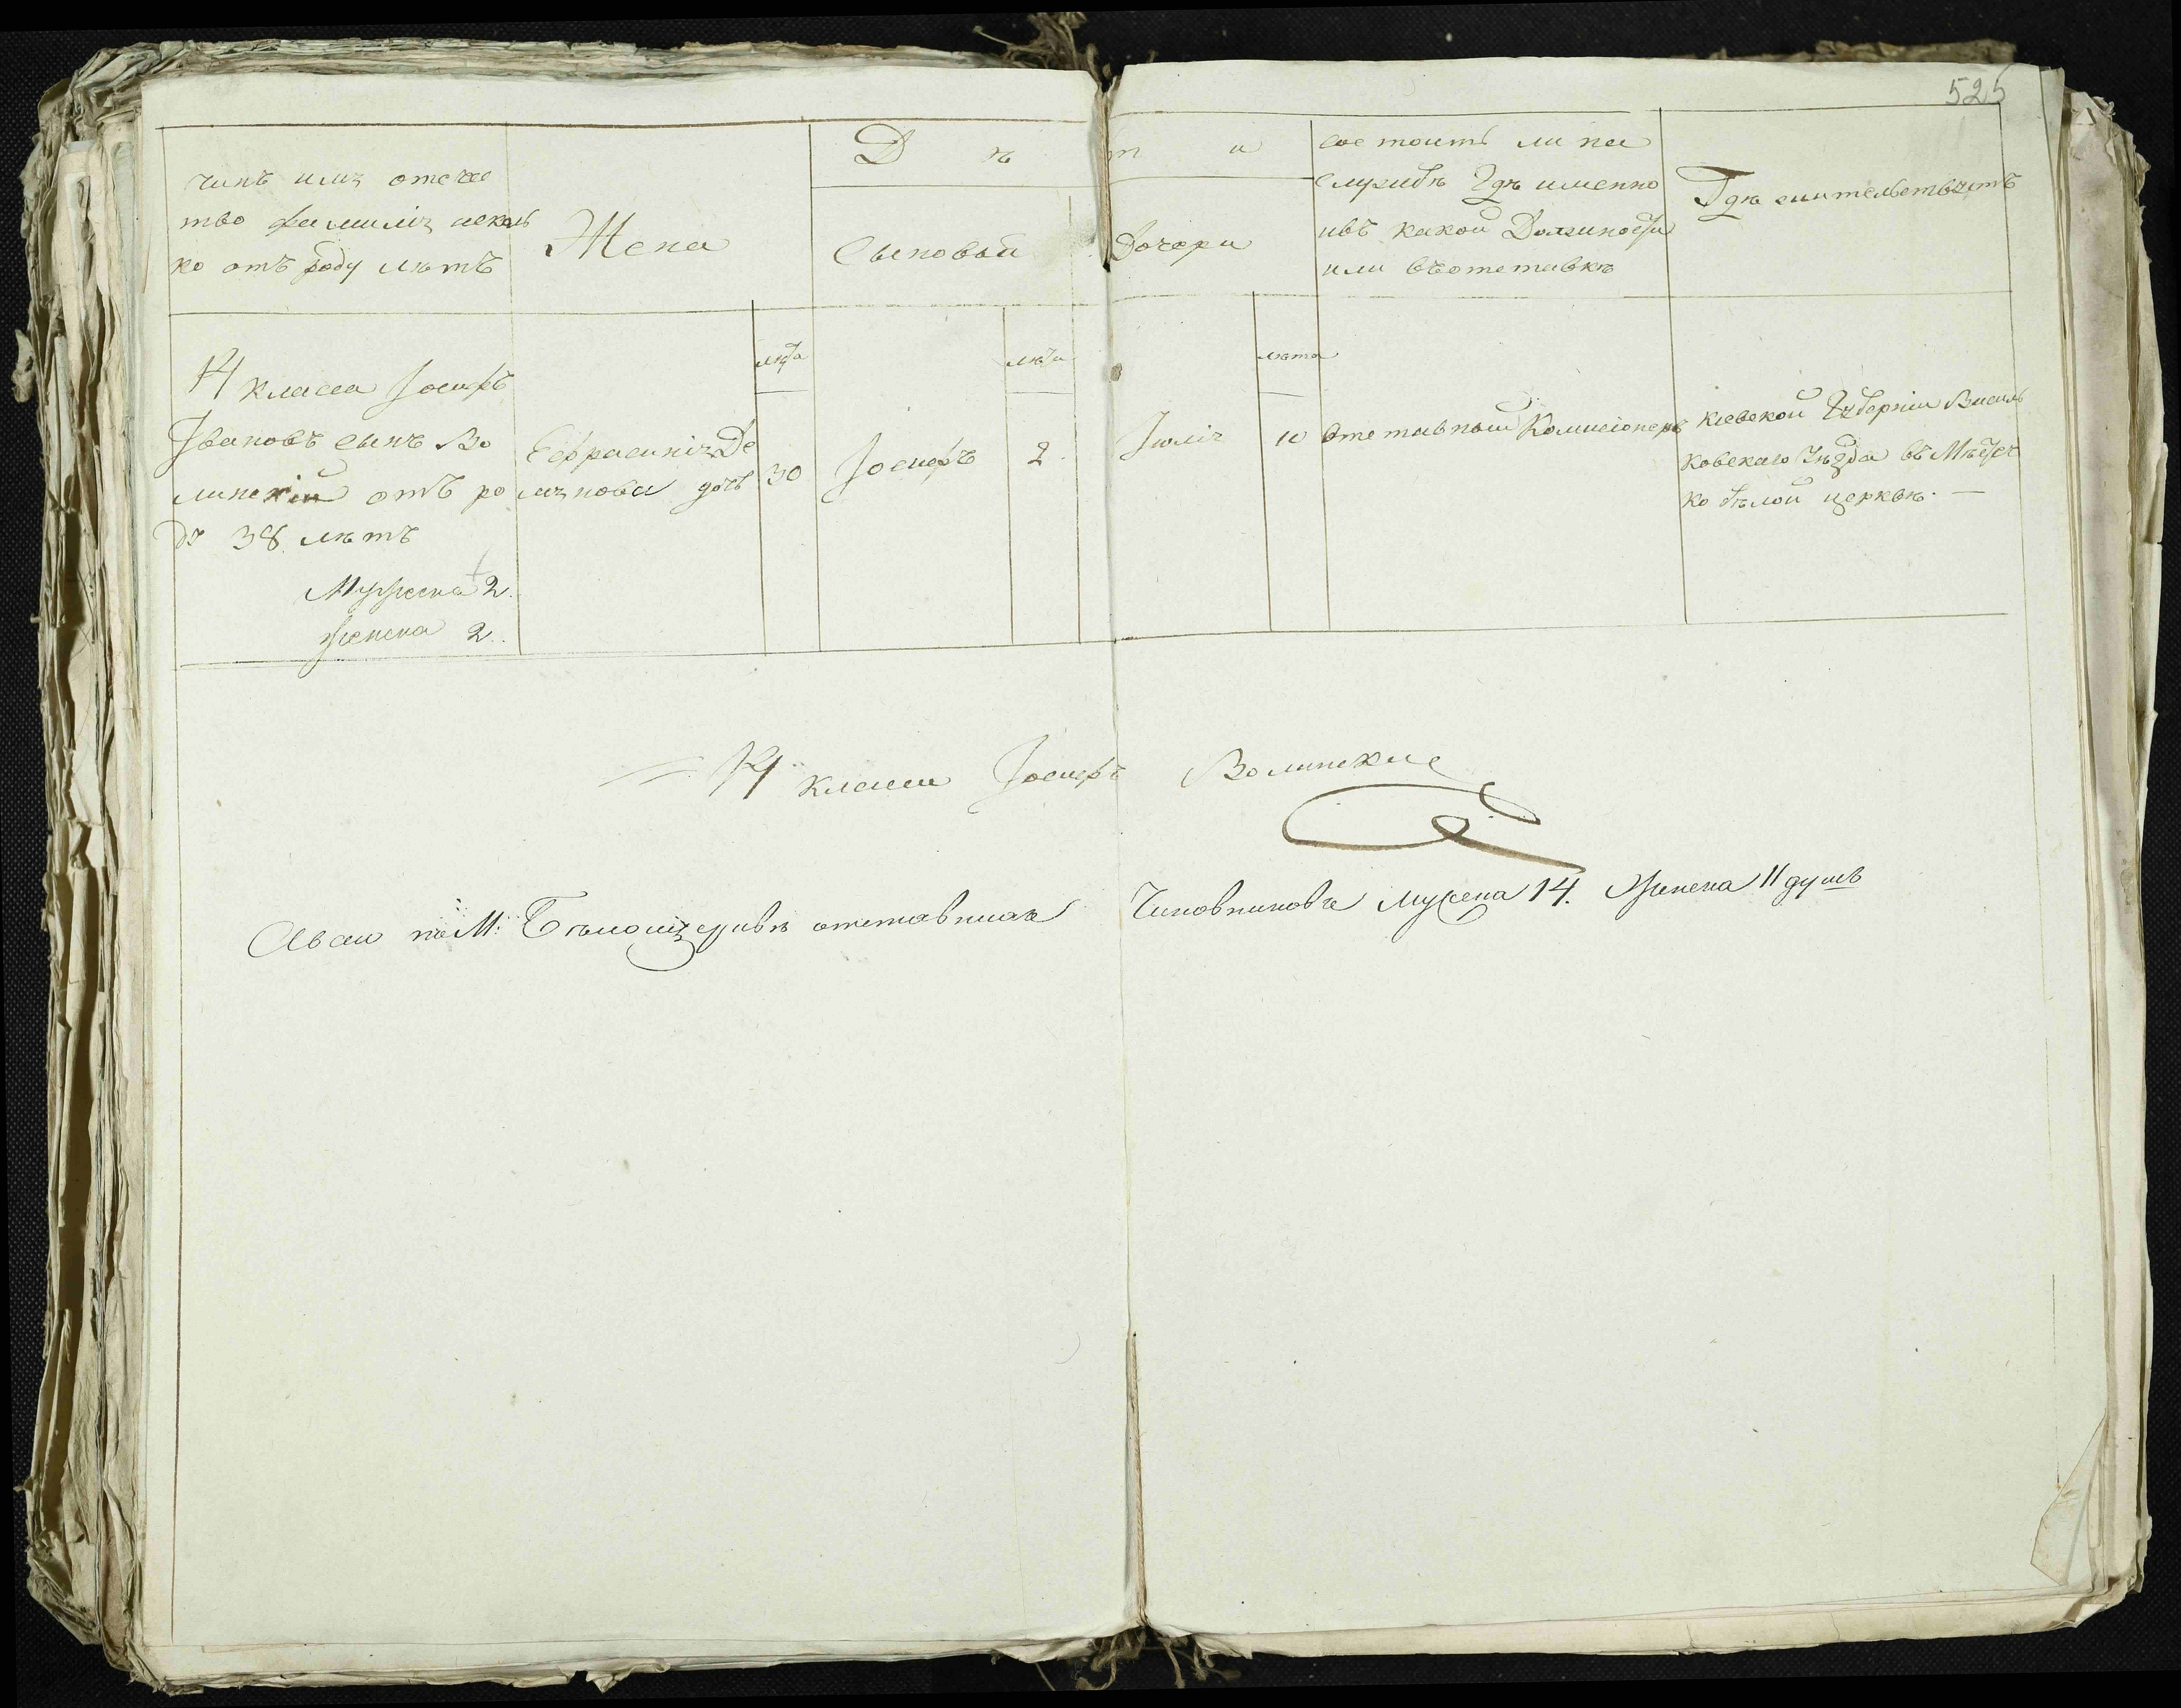 525
чинъ имя отече
ство фамилія исколь
ко отъ роду лѣтъ
Жена
Дѣти
Сыновьи
Дочери
состоитъ ли на
службѣ гдѣ именно
ивъ какой Должности
или въотставкѣ
Гдѣ жительствуетъ
лѣта
лѣта
лѣта
14 класса Іосифъ
Івановъ сынъ Во
линскій отъ ро
ду 38 лѣтъ
Мужеска 2.
Женска 2.
Ефрасинія Де
мянова дочь
30
Іосифъ
2.
Іюлія
10
отставный Комисіонеръ
Кіевской Губерніи Василь
ковскаго Уѣзда въ Мѣстеч
ко бѣлой церквѣ. —
14 класса Іосифъ Волинские
Авсего по М: Бѣлоцерквѣ отставныхъ Чиновниковъ мужеска 14. Женска 11 душъ